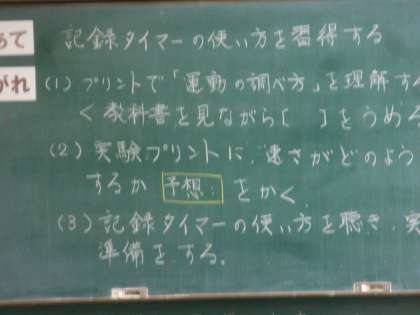 あて 記録タイマーの使い方を習得する
がれ (1) プリントで「運動の調べ方」を理解す
く教科書を見ながら[ ]をうめ
(2) 実験プリントに、速さがどのよう
するか 予想: をかく
(3) 記録タイマーの使い方を聴き、実
準備をする。